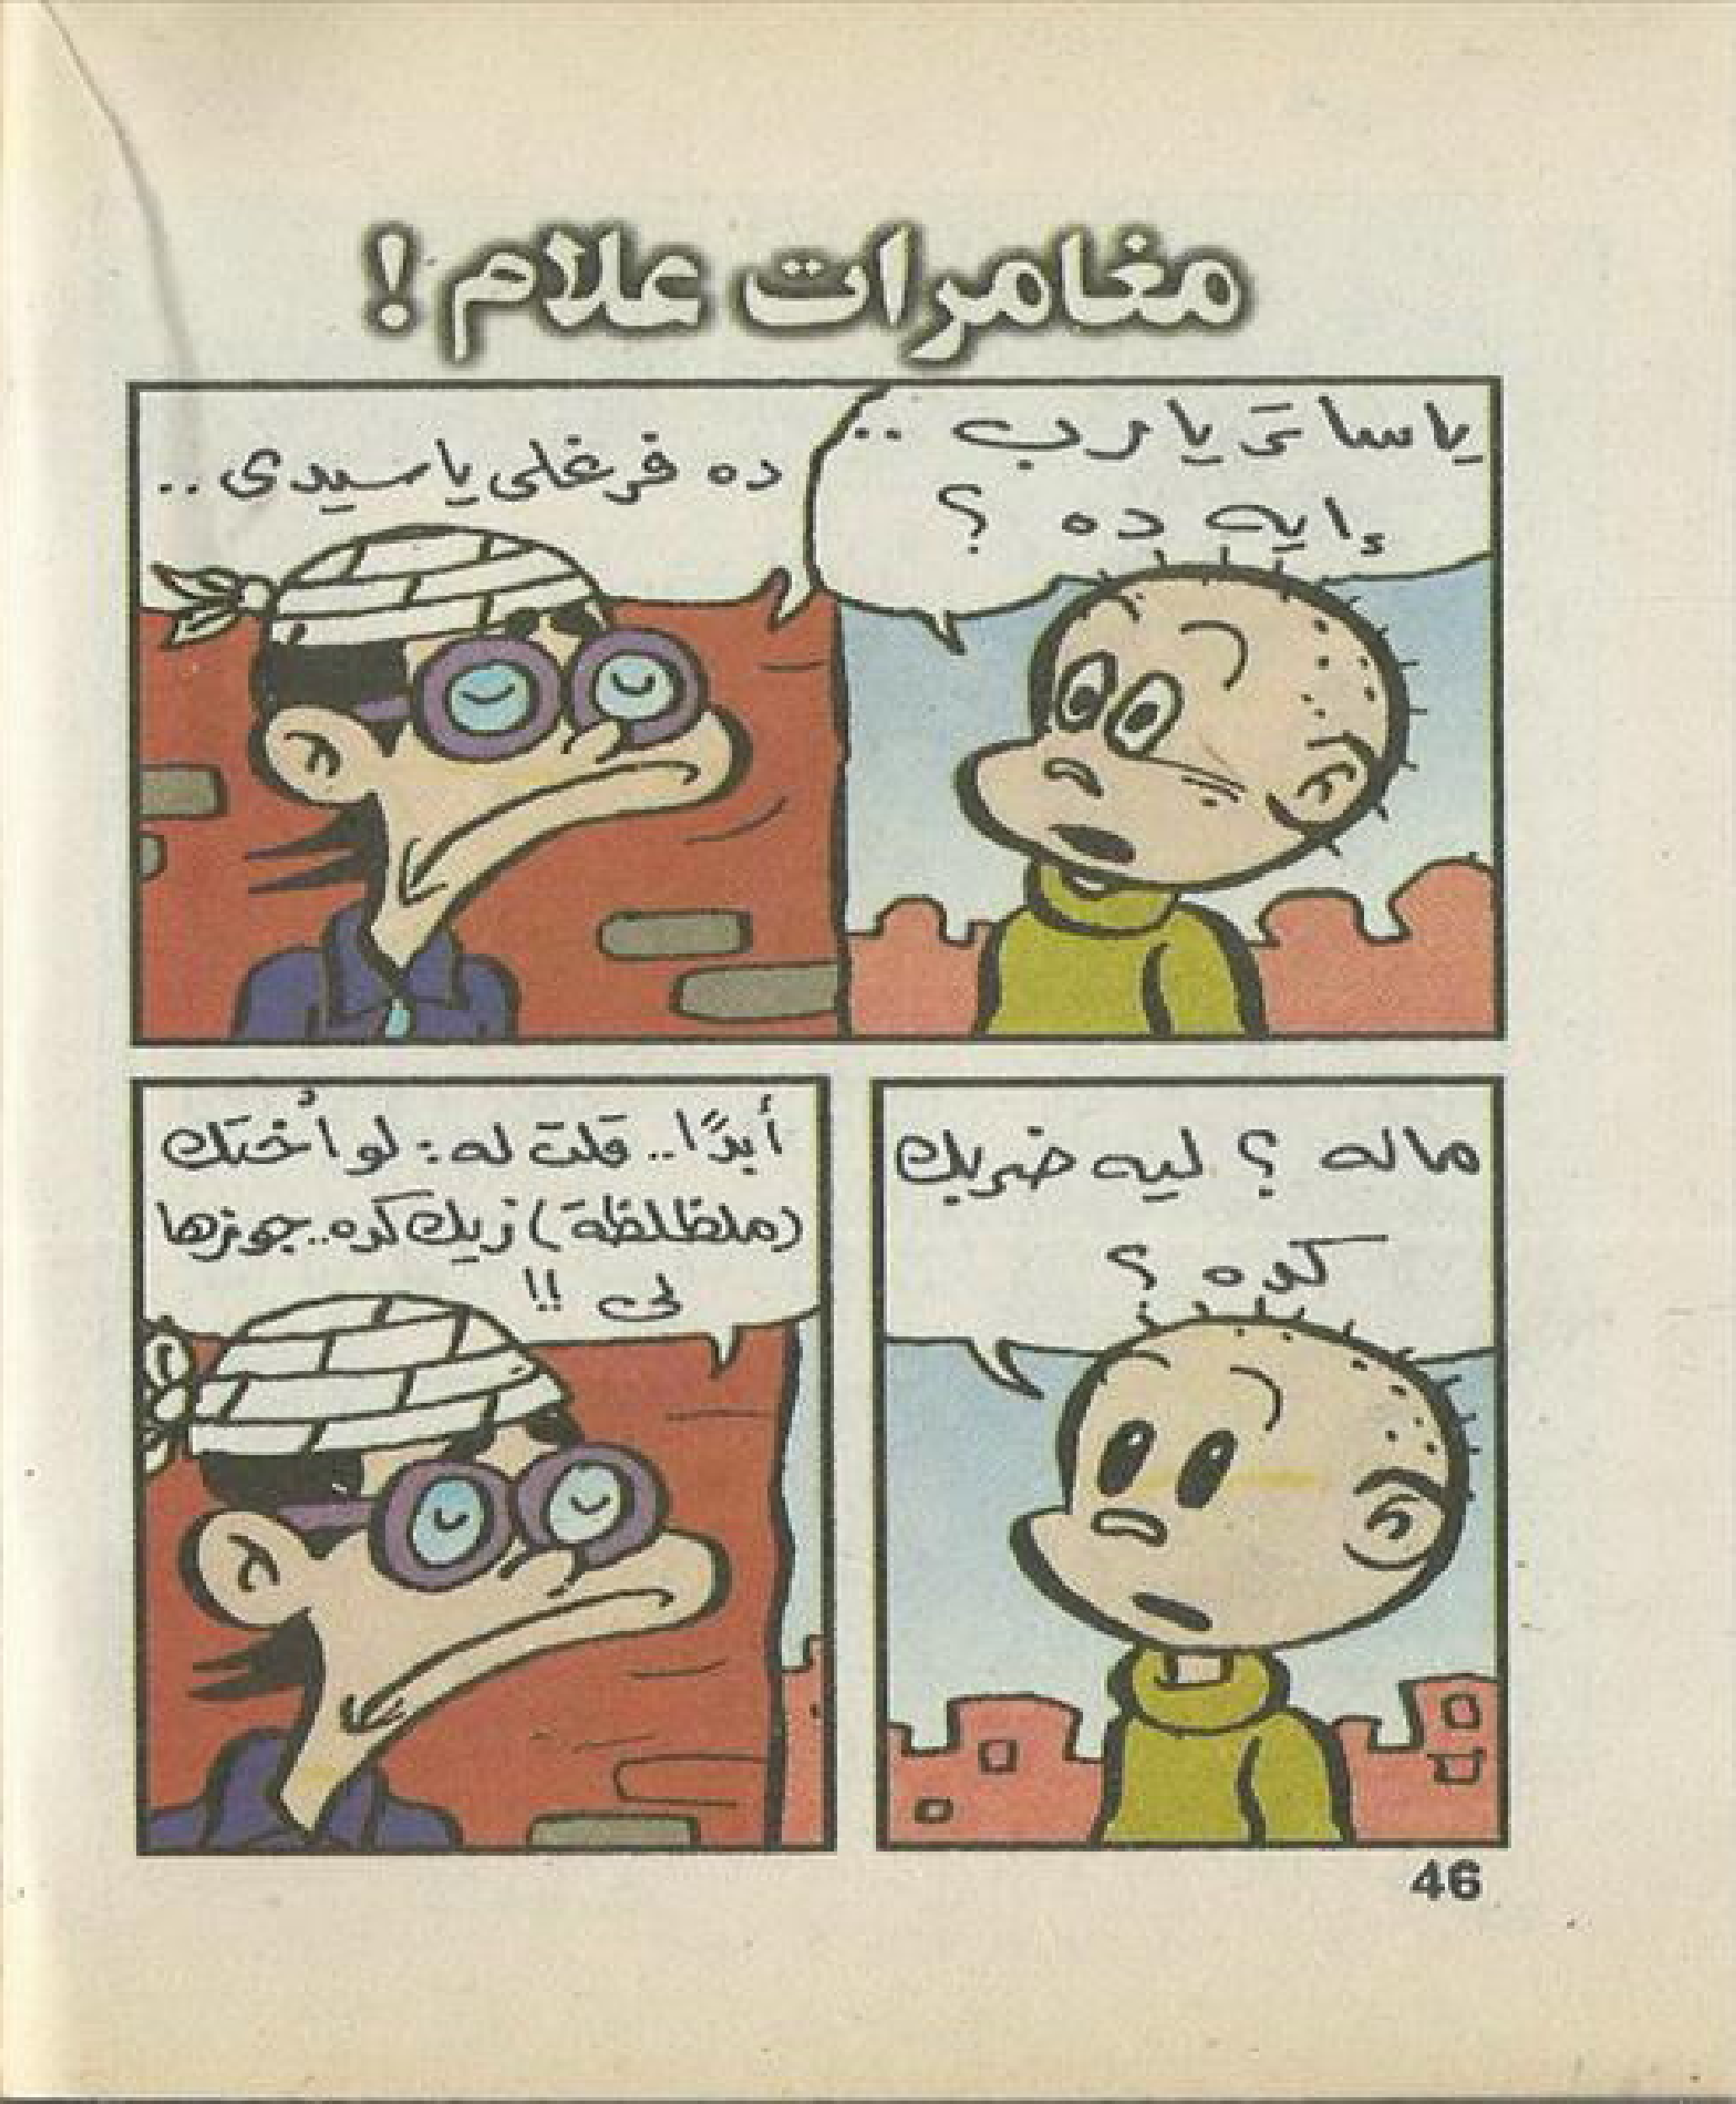 مغامرات علام !
يا ساتر يارب ..
إيه ده ؟
ده فرغلى ياسيدى ..
ماله ؟ ليه ضربك
كده ؟
أبدًا.. قلت له : لو أُختك
(ملظلظة) زيك كده.. جوزها
لى !!
46